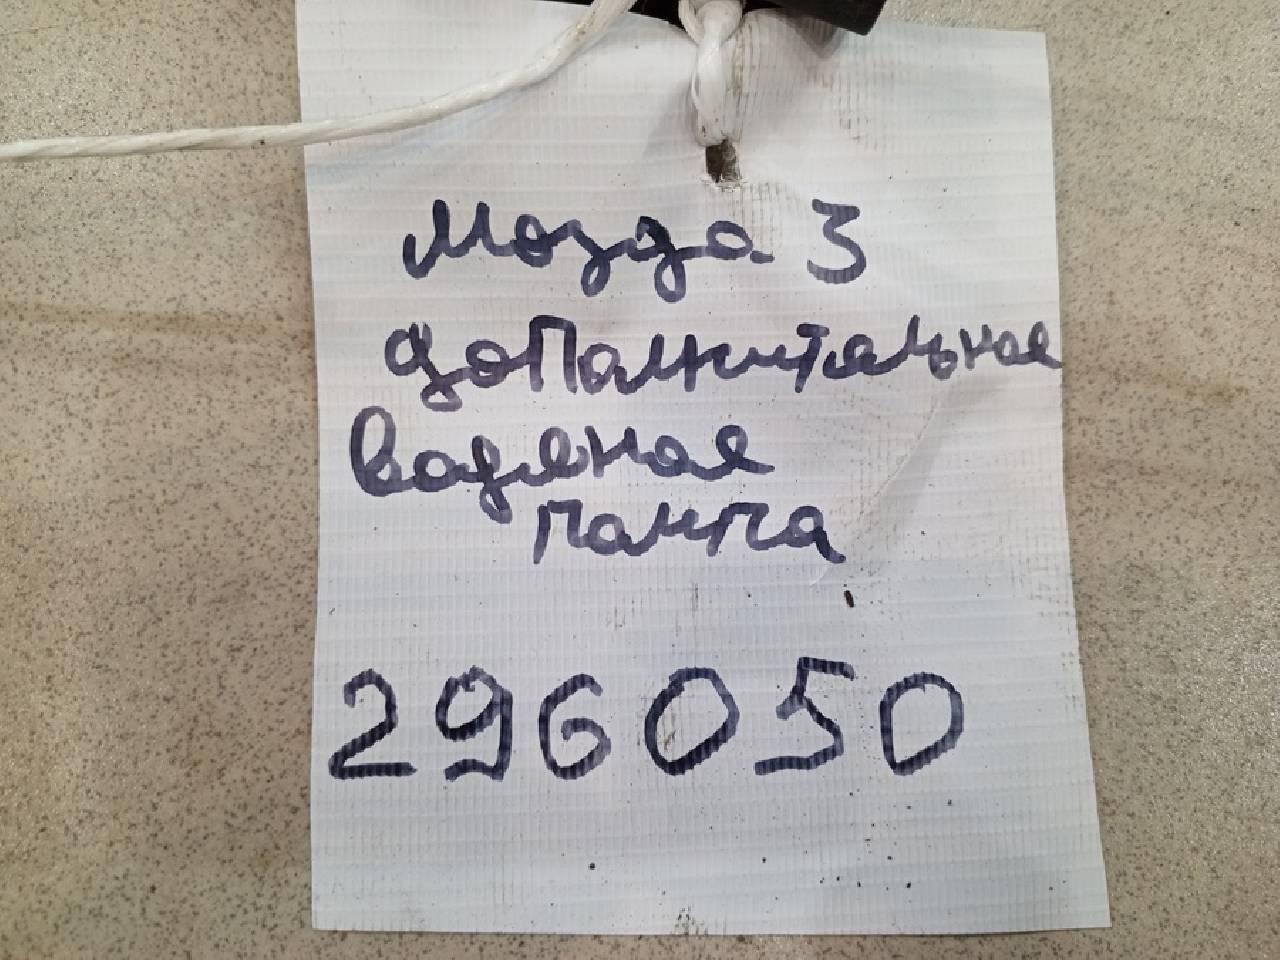 Мозда 3
дополнительная
водяная
помпа
296050